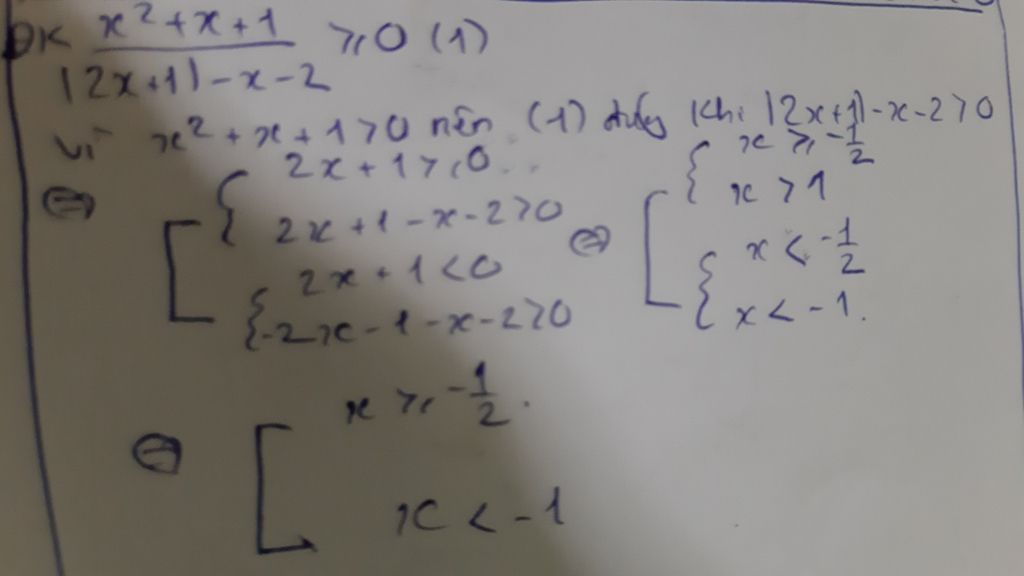 ĐK \frac{x² + x + 1}{|2x+1| - x - 2} ⩾ 0 (1)
Vì x² + x + 1 > 0 nên (1) đúng khi |2x+1| - x - 2 > 0
⇔ [ { 2x + 1 ⩾ 0 ; 2x + 1 - x - 2 > 0 } ; { 2x + 1 < 0 ; -2x - 1 - x - 2 > 0 } ⇔ [ { x ⩾ -\frac{1}{2} ; x > 1 } ; { x < -\frac{1}{2} ; x < -1. }
⇔ [ x ⩾ -\frac{1}{2}.
x < -1